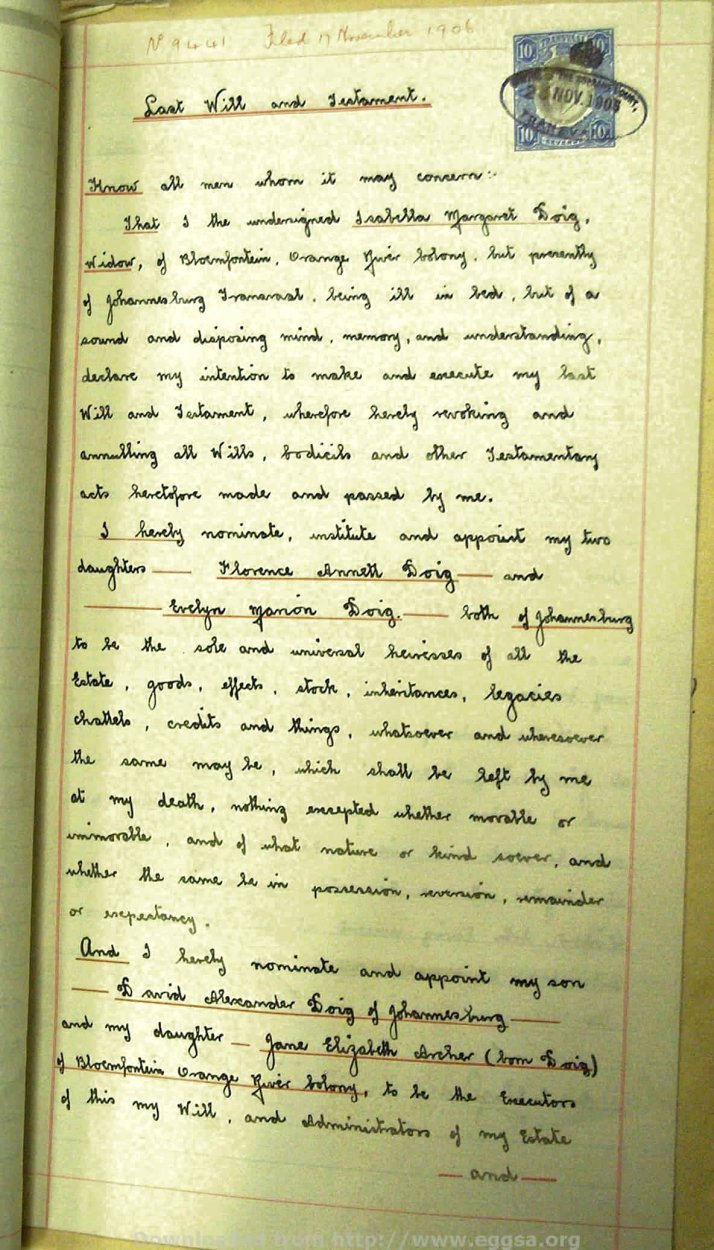 No 9441 Filed 17 November 1906
10 TRANSVAAL 10
SUPREME COURT,
NOV. 190
TRANSVAAL
10 REVENUE 10
Last Will and Testament.
Know all men whom it may concern:-
That I the undersigned Isabella Margaret Doig,
Widow, of Bloemfontein, Orange River Colony, but presently
of Johannesburg Transvaal, being ill in bed, but of a
sound and disposing mind, memory, and understanding,
declare my intention to make and execute my last
Will and Testament, wherefore hereby revoking and
annulling all Wills, Codicils and other Testamentary
acts heretofore made and passed by me.
I hereby nominate, institute and appoint my two
daughters — Florence Annett Doig — and
— Evelyn Marion Doig. — both of Johannesburg
to be the sole and universal heiresses of all the
Estate, goods, effects, stock, inheritances, legacies
chattels, credits and things, whatsoever and wheresoever
the same may be, which shall be left by me
at my death, nothing excepted whether movable or
immovable, and of what nature or kind soever, and
whether the same be in possession, reversion, remainder
or expectancy.
And I hereby nominate and appoint my son
— David Alexander Doig of Johannesburg —
and my daughter — Jane Elizabeth Archer (born Doig)
of Bloemfontein Orange River Colony, to be the Executors
of this my Will, and Administrators of my Estate
— and —
Downloaded from http://www.eggsa.org